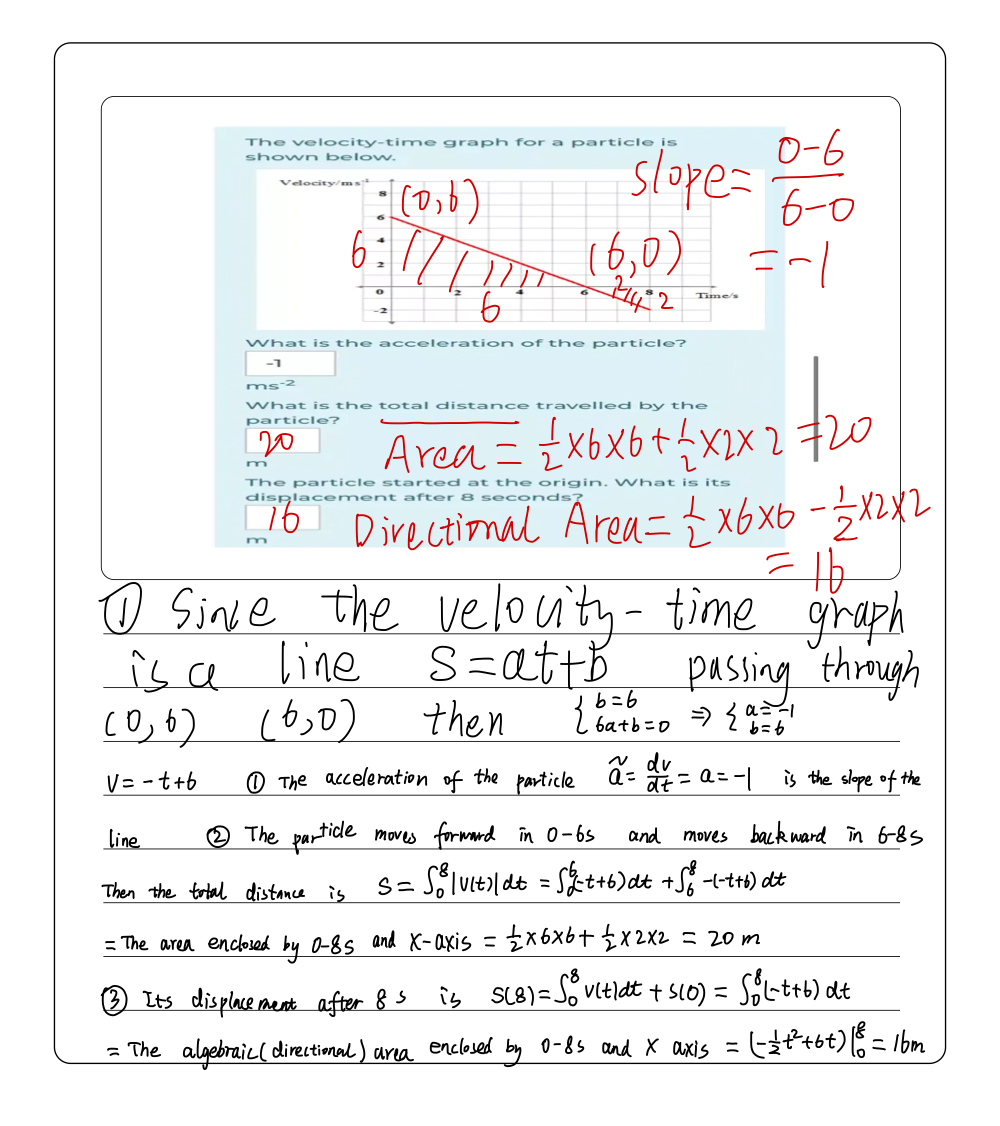 The velocity-time graph for a particle is
shown below.
slope = 0-6/6-0
= -1
Velocity/ms⁻¹
8
6
4
2
0
-2
2
4
6
8
Time/s
(0,6)
(6,0)
6
6
2
What is the acceleration of the particle?
-1
ms⁻²
What is the total distance travelled by the
particle?
20
m
Area = 1/2 ×6×6+ 1/2 ×2×2 =20
The particle started at the origin. What is its
displacement after 8 seconds?
16
m
Directional Area= 1/2 ×6×6 - 1/2 ×2×2
= 16
① Since the velocity-time graph
is a line S=at+b passing through
(0,6) (6,0) then { b=6 6a+b=0 ⇒ { a=-1 b=6
V=-t+6 ① The acceleration of the particle ã = dv/dt = a = -1 is the slope of the
line ② The particle moves forward in 0-6s and moves backward in 6-8s
Then the total distance is S = ∫₀⁸ |V(t)| dt = ∫₀⁶(-t+6)dt + ∫₆⁸ -(-t+6) dt
= The area enclosed by 0-8s and X-axis = 1/2 ×6×6+ 1/2 ×2×2 = 20 m
③ Its displacement after 8 s is S(8)=∫₀⁸ V(t)dt + S(0) = ∫₀⁸(-t+6) dt
= The algebraic(directional) area enclosed by 0-8s and X axis = (-1/2 t²+6t)|₀⁸ = 16m